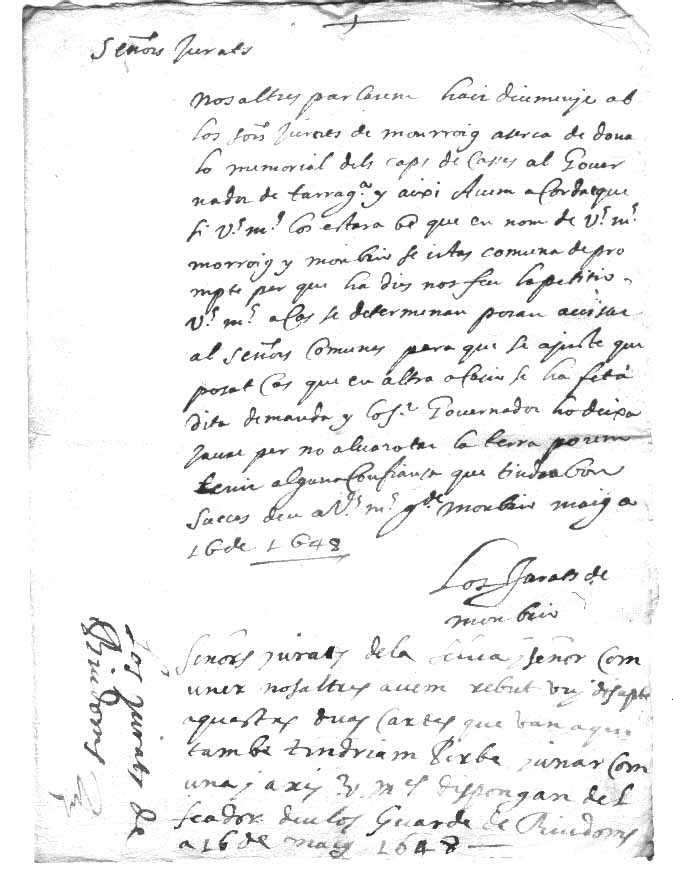 Señors Jurats
nosaltres parlarem hair diumenje ab
los sors. Jurats de monrroig aserca de dona
lo memorial dels caps de Cases al Gover
nador de tarragª y aixi Avem acordat que
si V.s m.s los estara be que en nom de V.s m.s
morroig y monbrio se comuna de pro
mpte per que ha dies nos feu la petitio
V.s m.s a Cas se determenan poran avisar
al Señors Comunes para que se ajuste que
posat Cas que en altra ocasio se ha feta
dita demanda y lo Sr. Governador ho deixa
per no alvarotar la terra porem
tenir alguna Confiansa que tindra bon
succes deu a V.s m.s gde monbrio maig a
16 de 1648
Los Jurats de
monbrio
Señors jurats de la y señor Com
uner nosaltres avem rebut vuy disapte
aquestes duas Cartes que van aqui
tambe tindriam per be junar Com
una y axi V m.s dispongan del
feador deu los Guarde de Riudoms
a 16 de maig 1648
Los jurats de
Riudoms